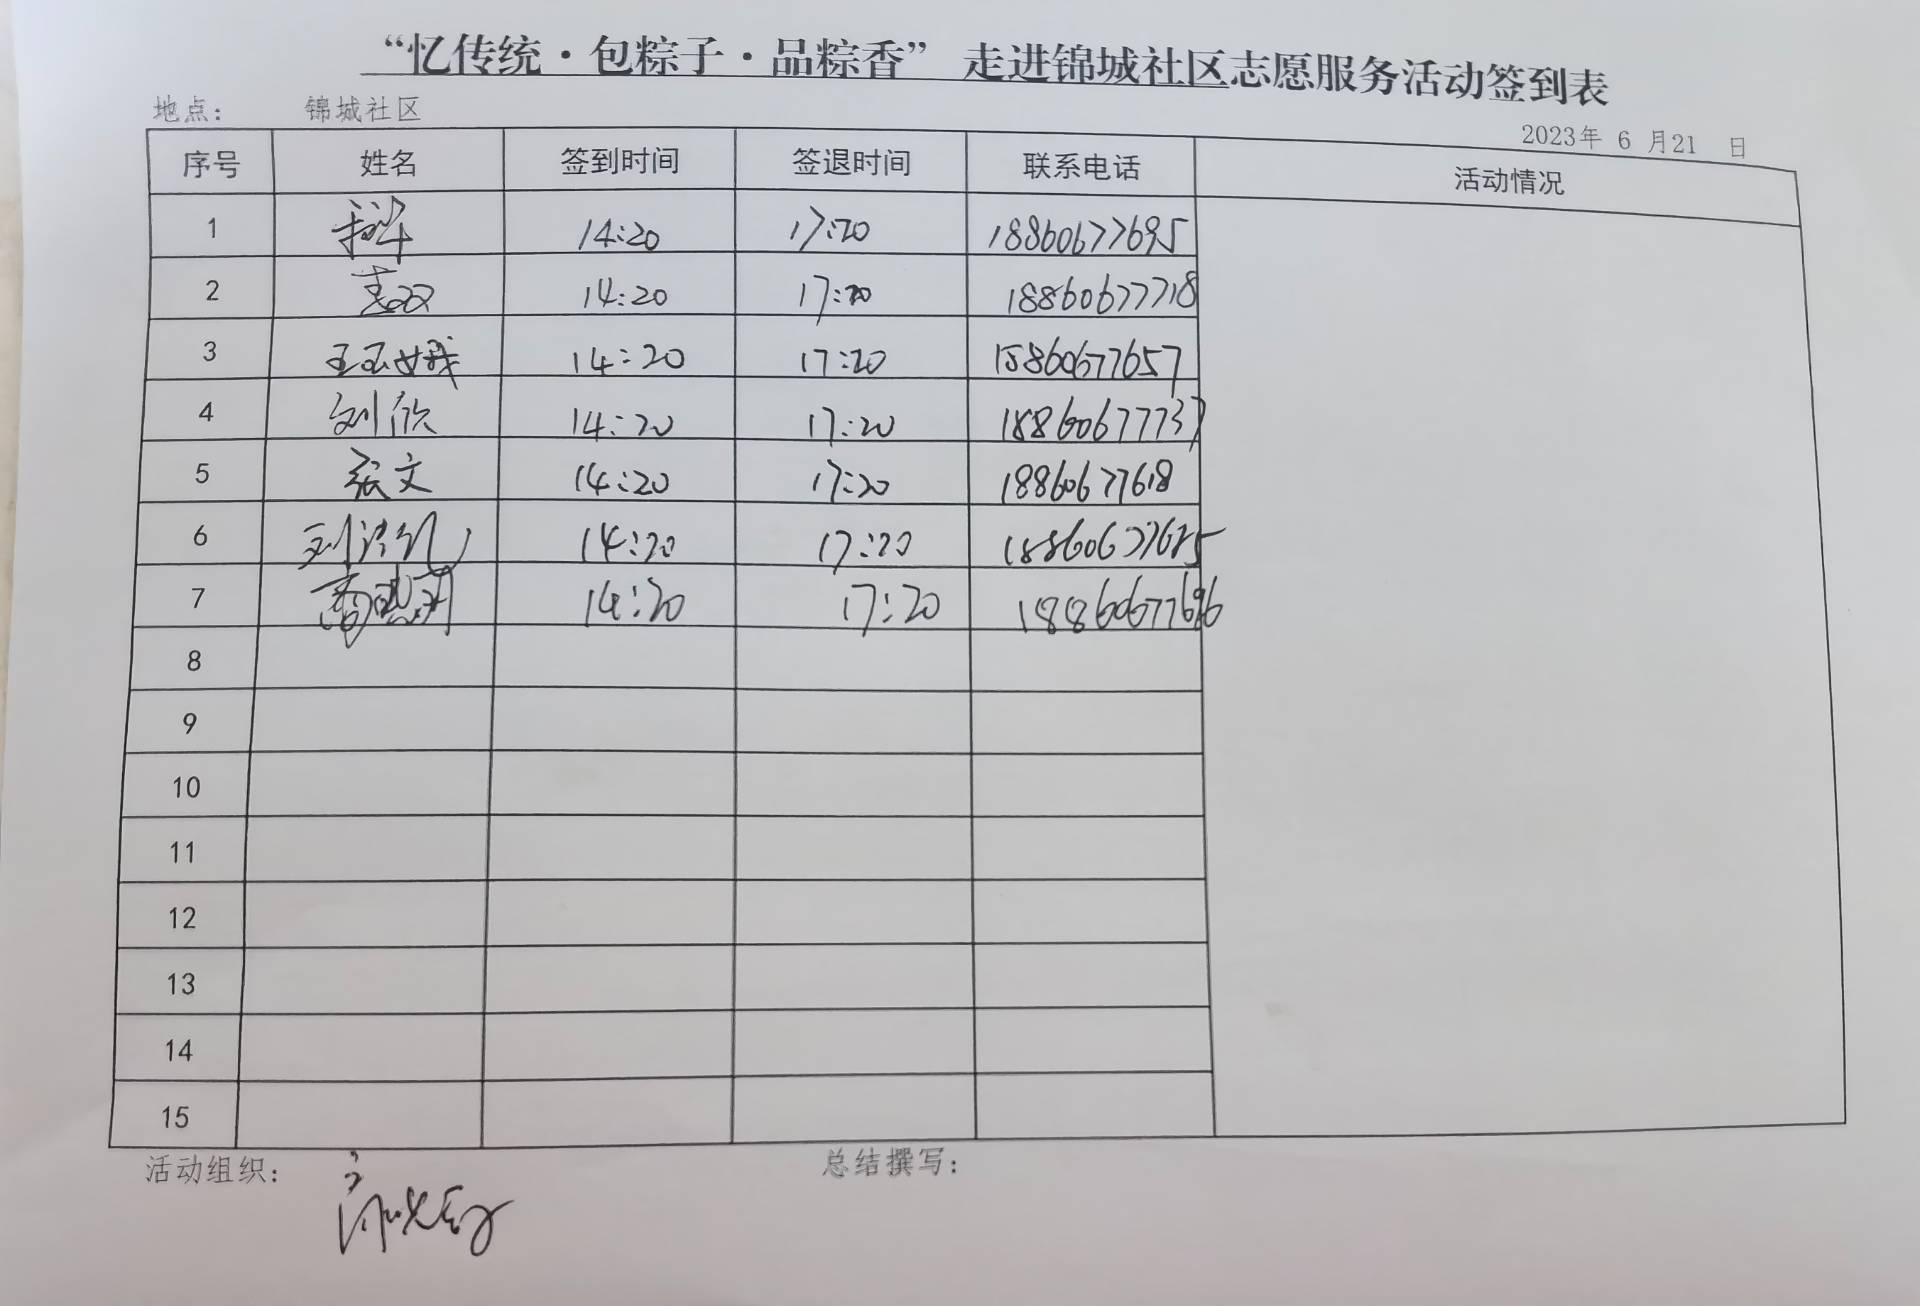 “忆传统·包粽子·品粽香” 走进锦城社区志愿服务活动签到表
地点： 锦城社区
2023年 6 月21 日
序号 姓名 签到时间 签退时间 联系电话 活动情况
1 14:20 17:20 18860677695
2 袁双 14:20 17:20 18860677718
3 王玉娥 14:20 17:20 15860677657
4 刘欣 14:20 17:20 18860677737
5 张文 14:20 17:20 18860677618
6 14:20 17:20 18860677685
7 14:20 17:20 18860677696
8
9
10
11
12
13
14
15
活动组织： 总结撰写：